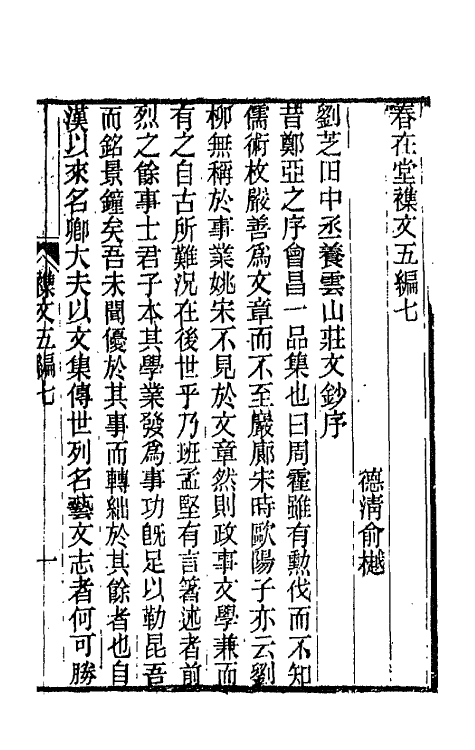 春在堂襍文五編七
德淸俞樾
劉芝田中丞養雲山莊文鈔序
昔鄭亞之序會昌一品集也曰周霍雖有勲伐而不知
儒術枚嚴善爲文章而不至巖廊宋時歐陽子亦云劉
柳無稱於事業姚宋不見於文章然則政事文學兼而
有之自古所難況在後世乎乃班孟堅有言箸述者前
烈之餘事士君子本其學業發爲事功旣足以勒昆吾
而銘景鐘矣吾未聞優於其事而轉絀於其餘者也自
漢以來名卿大夫以文集傳世列名藝文志者何可勝
襍文五編七
一